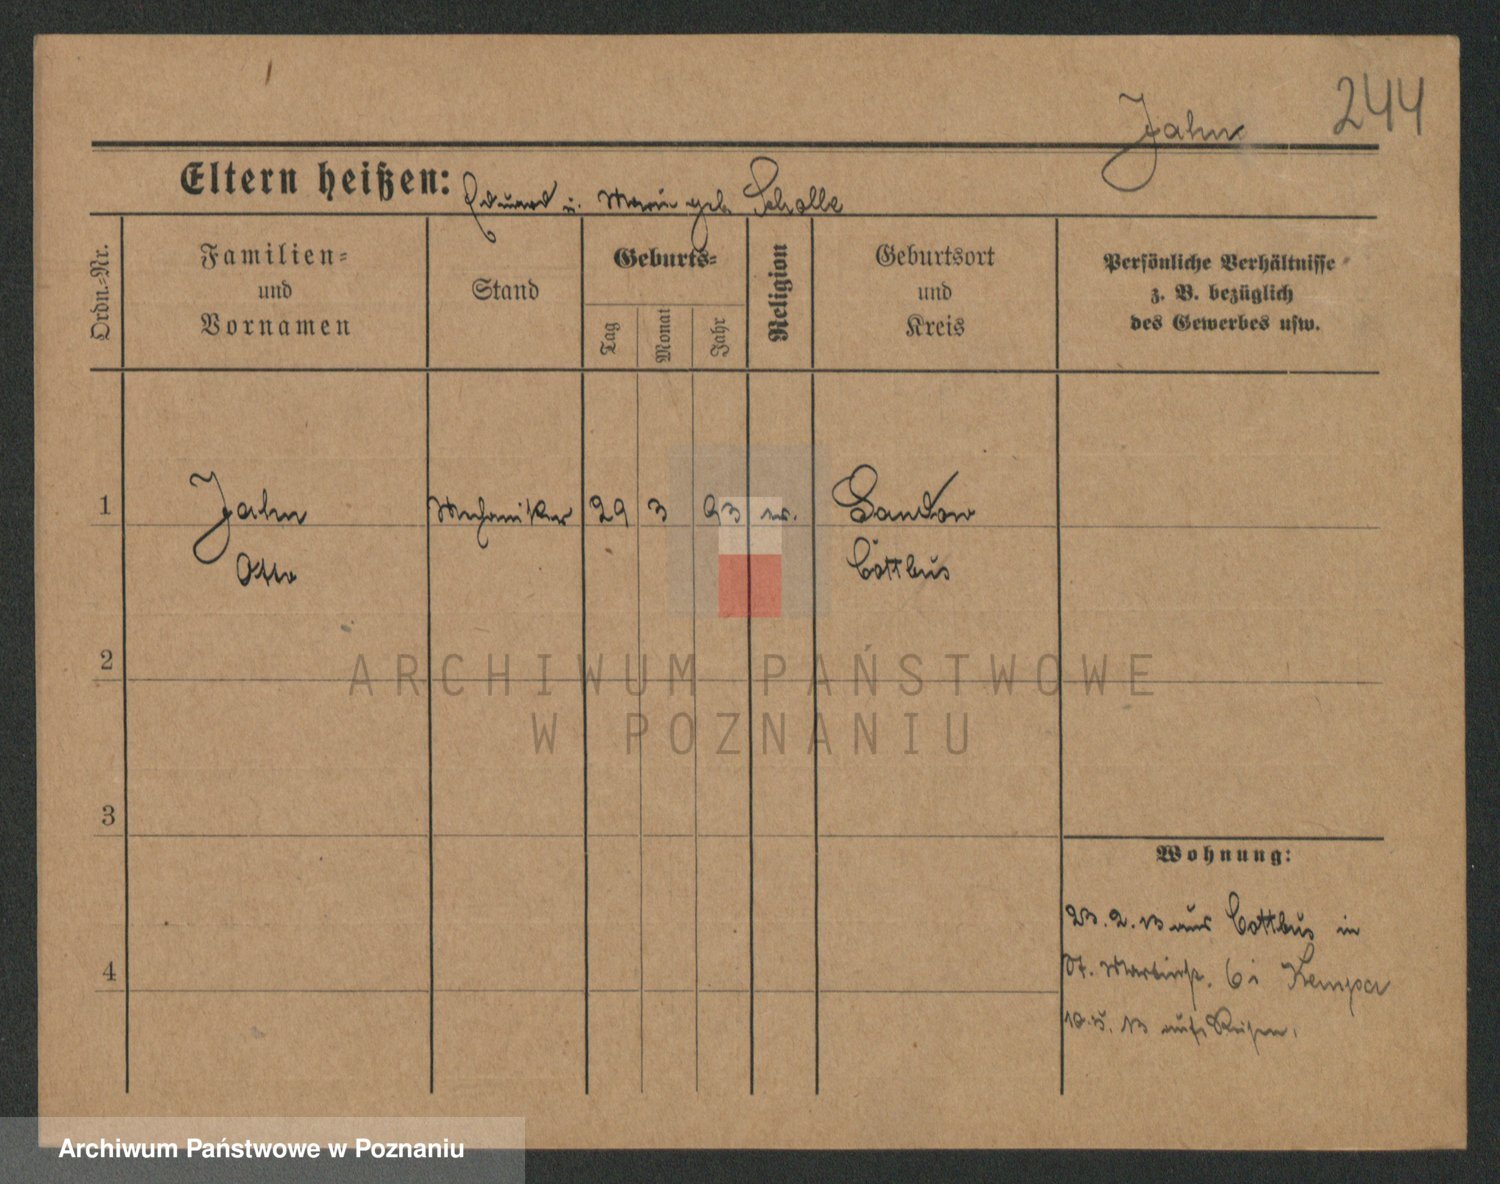 Jahn
244
Eltern heißen: Eduard u. Marie geb. Scholle
Ordn.-Nr.
Familien-
und
Vornamen
Stand
Geburts-
Tag
Monat
Jahr
Religion
Geburtsort
und
Kreis
Persönliche Verhältnisse
z. B. bezüglich
des Gewerbes usw.
1
Jahn
Otto
Mechaniker
29
3
93
ev.
Sandow
Cottbus
2
ARCHIWUM PAŃSTWOWE
W POZNANIU
3
4
Wohnung:
23. 2. 13 aus Cottbus in
St. Martinstr. 6 i Kempa
13 auf Reisen.
Archiwum Państwowe w Poznaniu